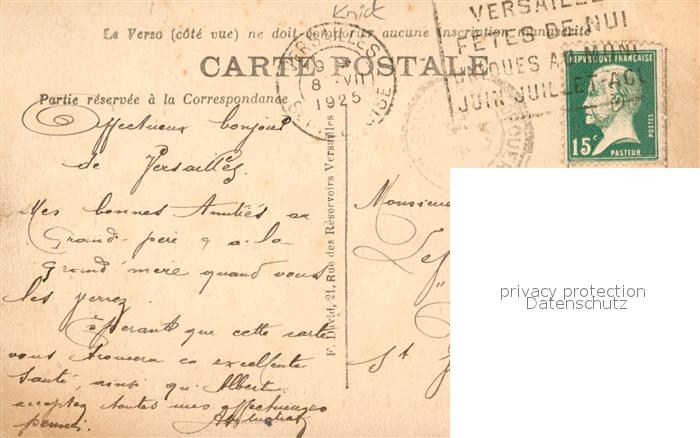 Knick
VERSAILLES
FETES DE NUIT
UNIQUES AU MONDE
JUIN JUILLET AOUT
Le Verso (côté vue) ne doit comporter aucune Inscription manuscrite
VERSAILLES
9
8 -VII
1925
S.-ET-OISE
CARTE POSTALE
REPVBLIQVE FRANÇAISE
15c
POSTES
PASTEUR
Partie réservée à la Correspondance
F. David, 21, Rue des Réservoirs Versailles
Affectueux bonjour
de Versailles.
Mes bonnes Amitiés au
Grand-père & a la
Grand'mère quand vous
les verrez
Espérant que cette carte
vous trouvera en excellente
santé, ainsi qu'Albert.
acceptez toutes mes affectueuses
pensées.
Monsieur
Lef
St J
privacy protection
Datenschutz